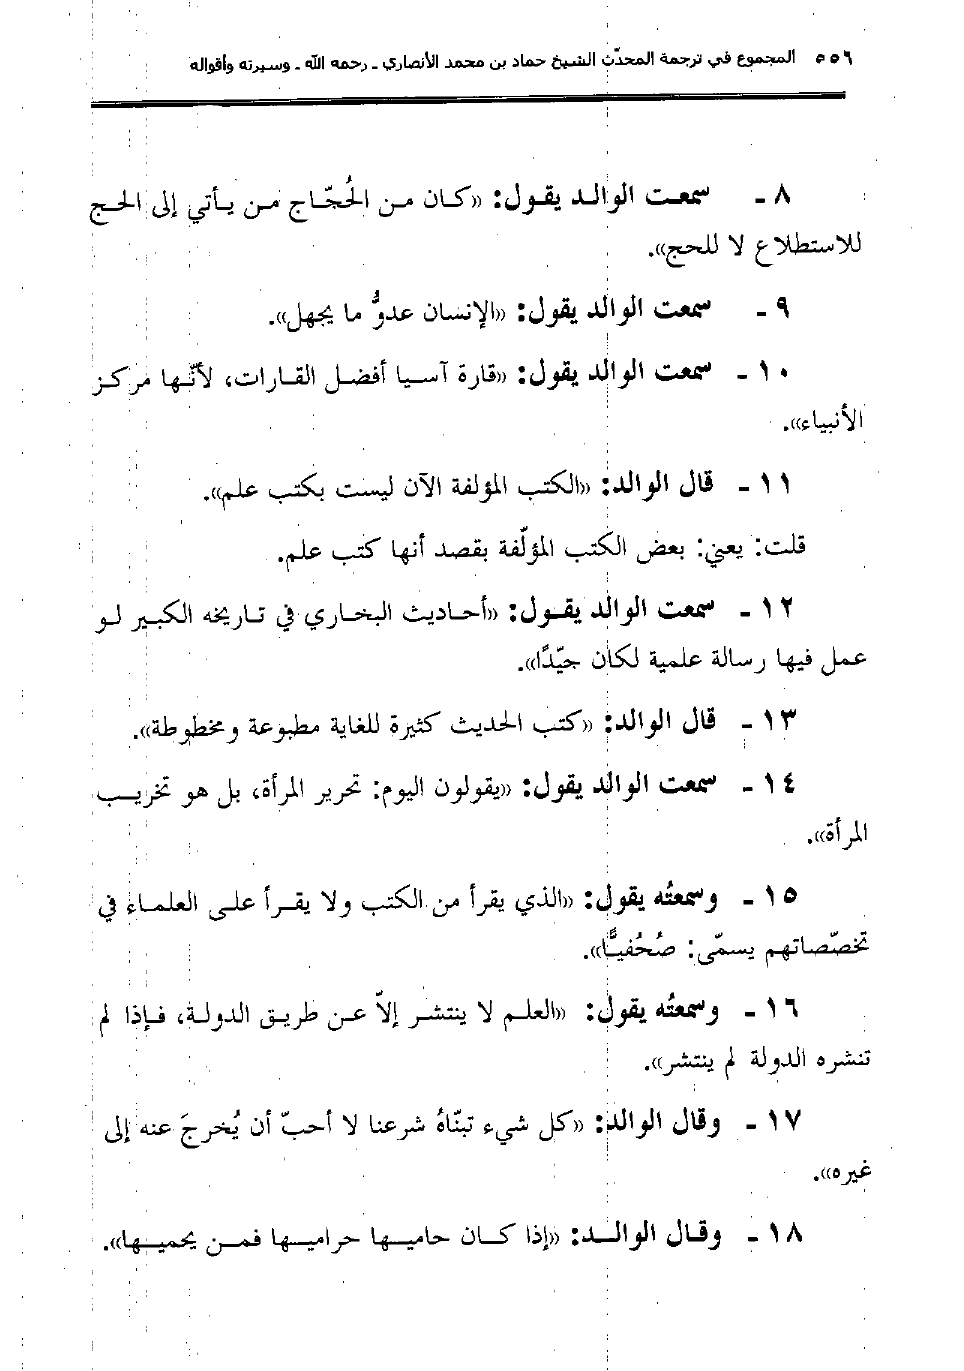 ٥٥٦ المجموع في ترجمة المحدّث الشيخ حماد بن محمد الأنصاري ـ رحمه الله ـ وسيرته وأقواله
٨ ـ سمعت الوالد يقول: «كان من الحُجّاج من يأتي إلى الحج
للاستطلاع لا للحج».
٩ ـ سمعت الوالد يقول: «الإنسان عدوُّ ما يجهل».
١٠ ـ سمعت الوالد يقول: «قارة آسيا أفضل القارات، لأنّها مركز
الأنبياء».
١١ ـ قال الوالد: «الكتب المؤلفة الآن ليست بكتب علم».
قلت: يعني: بعض الكتب المؤلّفة بقصد أنها كتب علم.
١٢ ـ سمعت الوالد يقول: «أحاديث البخاري في تاريخه الكبير لو
عمل فيها رسالة علمية لكان جيّدًا».
١٣ ـ قال الوالد: «كتب الحديث كثيرة للغاية مطبوعة ومخطوطة».
١٤ ـ سمعت الوالد يقول: «يقولون اليوم: تحرير المرأة، بل هو تخريب
المرأة».
١٥ ـ وسمعتُه يقول: «الذي يقرأ من الكتب ولا يقرأ على العلماء في
تخصّصاتهم يسمّى: صُحُفيًّا».
١٦ ـ وسمعتُه يقول: «العلم لا ينتشر إلاّ عن طريق الدولة، فإذا لم
تنشره الدولة لم ينتشر».
١٧ ـ وقال الوالد: «كل شيء تبنّاهُ شرعنا لا أحبّ أن يُخرجَ عنه إلى
غيره».
١٨ ـ وقال الوالد: «إذا كان حاميها حراميها فمن يحميها».